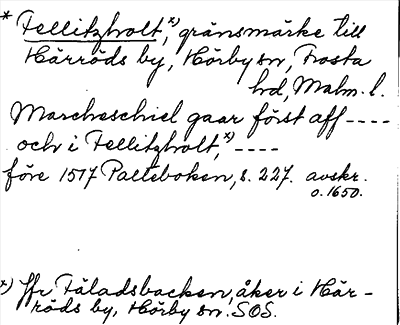 * Fellitzholt,*) gränsmärke till
Härröds by, Hörby sn, Frosta
hd, Malm. l.
Marcheschiel gaar först aff ----
och i Fellitzholt,*) ----
före 1517 Palteboken, s. 227. avskr.
o. 1650.
*) Jfr Fäladsbacken, åker i Här-
röds by, Hörby sn. SOS.